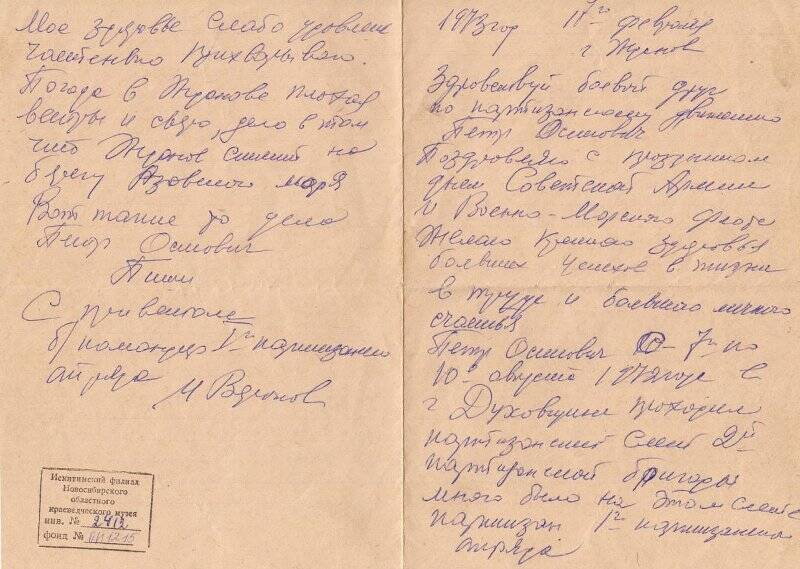 1973 год 17го февраля
г Жданов
Здравствуй боевой друг
по партизанскому движению
Петр Осипович
Поздравляю с праздником
днем Советской Армии
и Военно-Морского флота
Желаю крепкого здоровья
больших успехов в жизни
в труде и большого личного
счастья
Петр Осипович с 7го по
10е августа 1972 годе в
г Духовщине проходил
партизанский слет 2й
партизанской бригады
много было на этом слете
партизан 1го партизанского
отряда
Мое здоровье слабо
частенько прихварываю.
Погода в Жданове плохая
ветры и сыро, дело в том
что Жданов стоит на
берегу Азовского моря
Вот такие то дела
Петр Осипович
Пиши
С приветом
б/ командир 1го партизанского
отряда
Искитимский филиал
Новосибирского
областного
краеведческого музея
инв. № 2412
фонд №